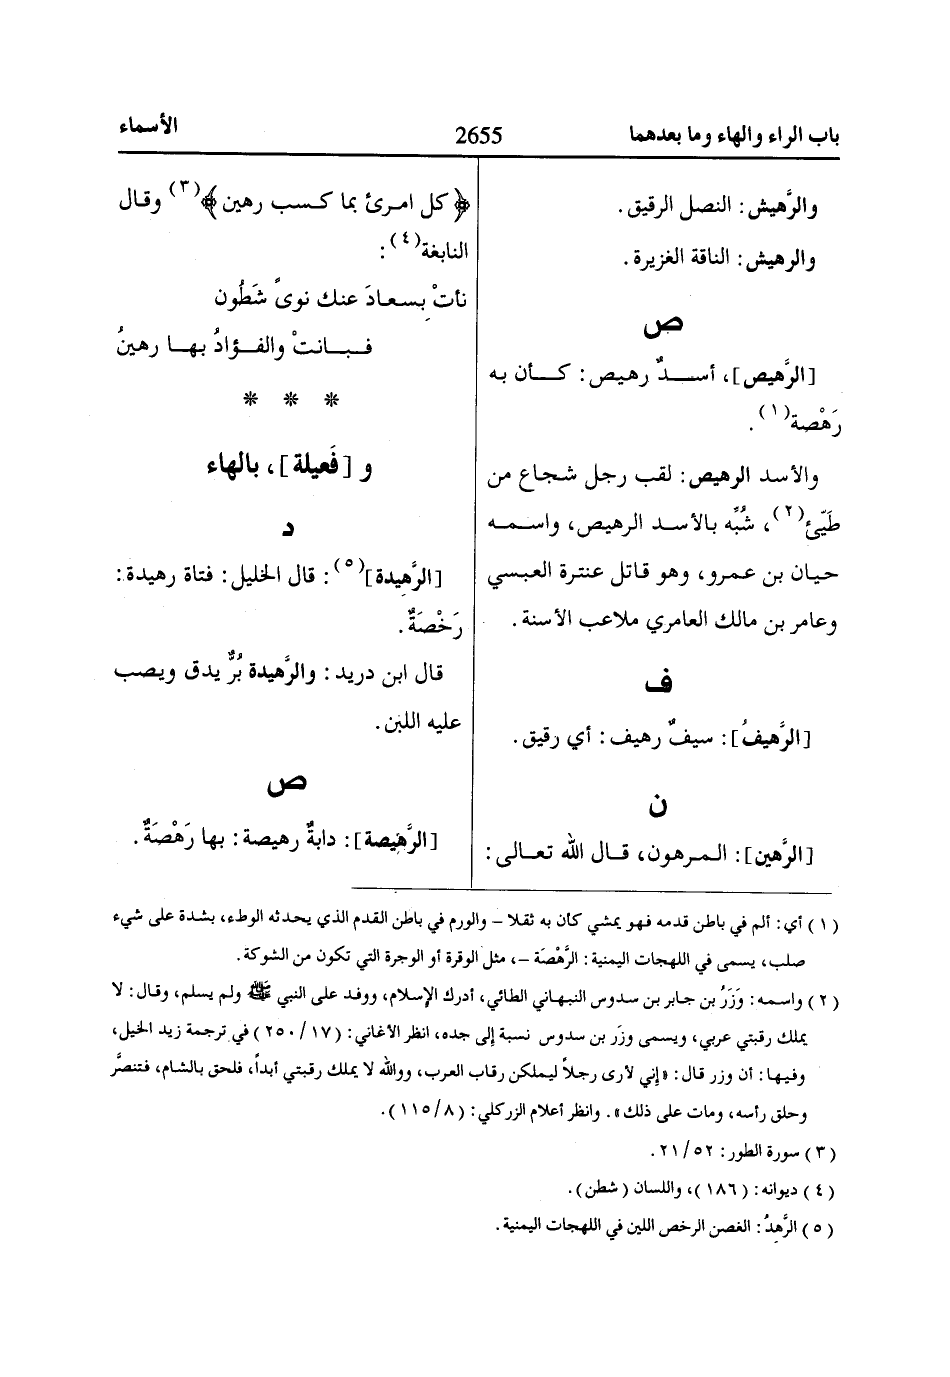 باب الراء والهاء وما بعدهما 2655 الأسماء
والرَّهيش: النصل الرقيق.
والرهيش: الناقة الغزيرة.
ص
[الرَّهيص]، أسدٌ رهيص: كأن به
رَهْصة(١).
والأسد الرهيص: لقب رجل شجاع من
طَيّئ(٢)، شُبِّه بالأسد الرهيص، واسمه
حيان بن عمرو، وهو قاتل عنترة العبسي
وعامر بن مالك العامري ملاعب الأسنة.
ف
[الرَّهيفُ]: سيفٌ رهيف: أي رقيق.
ن
[الرَّهين]: المرهون، قال الله تعالى:
﴿كل امرئ بما كسب رهين﴾(٣) وقال
النابغة(٤):
نأتْ بِسعادَ عنك نوىً شَطُون
فبانتْ والفؤادُ بها رهينُ
* * *
و [فَعيلة]، بالهاء
د
[الرَّهِيدة](٥): قال الخليل: فتاة رهيدة:
رَخْصَةٌ.
قال ابن دريد: والرَّهيدة بُرٌّ يدق ويصب
عليه اللبن.
ص
[الرَّهيصة]: دابةٌ رهيصة: بها رَهْصَةٌ.
(١) أي: ألم في باطن قدمه فهو يمشي كأن به ثقلا – والورم في باطن القدم الذي يحدثه الوطء، بشدة على شيء
صلب، يسمى في اللهجات اليمنية: الرَّهْصَة –، مثل الوقرة أو الوجرة التي تكون من الشوكة.
(٢) واسمه: وَزَرُ بن جابر بن سدوس النبهاني الطائي، أدرك الإسلام، ووفد على النبي ﷺ ولم يسلم، وقال: لا
يملك رقبتي عربي، ويسمى وزَر بن سدوس نسبة إلى جده، انظر الأغاني: (١٧/٢٥٠) في ترجمة زيد الخيل،
وفيها: أن وزر قال: «إني لأرى رجلاً ليملكن رقاب العرب، ووالله لا يملك رقبتي أبداً، فلحق بالشام، فتنصَّر
وحلق رأسه، ومات على ذلك». وانظر أعلام الزركلي: (٨/١١٥).
(٣) سورة الطور: ٥٢/٢١.
(٤) ديوانه: (١٨٦)، واللسان (شطن).
(٥) الرَّهِدُ: الغصن الرخص اللين في اللهجات اليمنية.